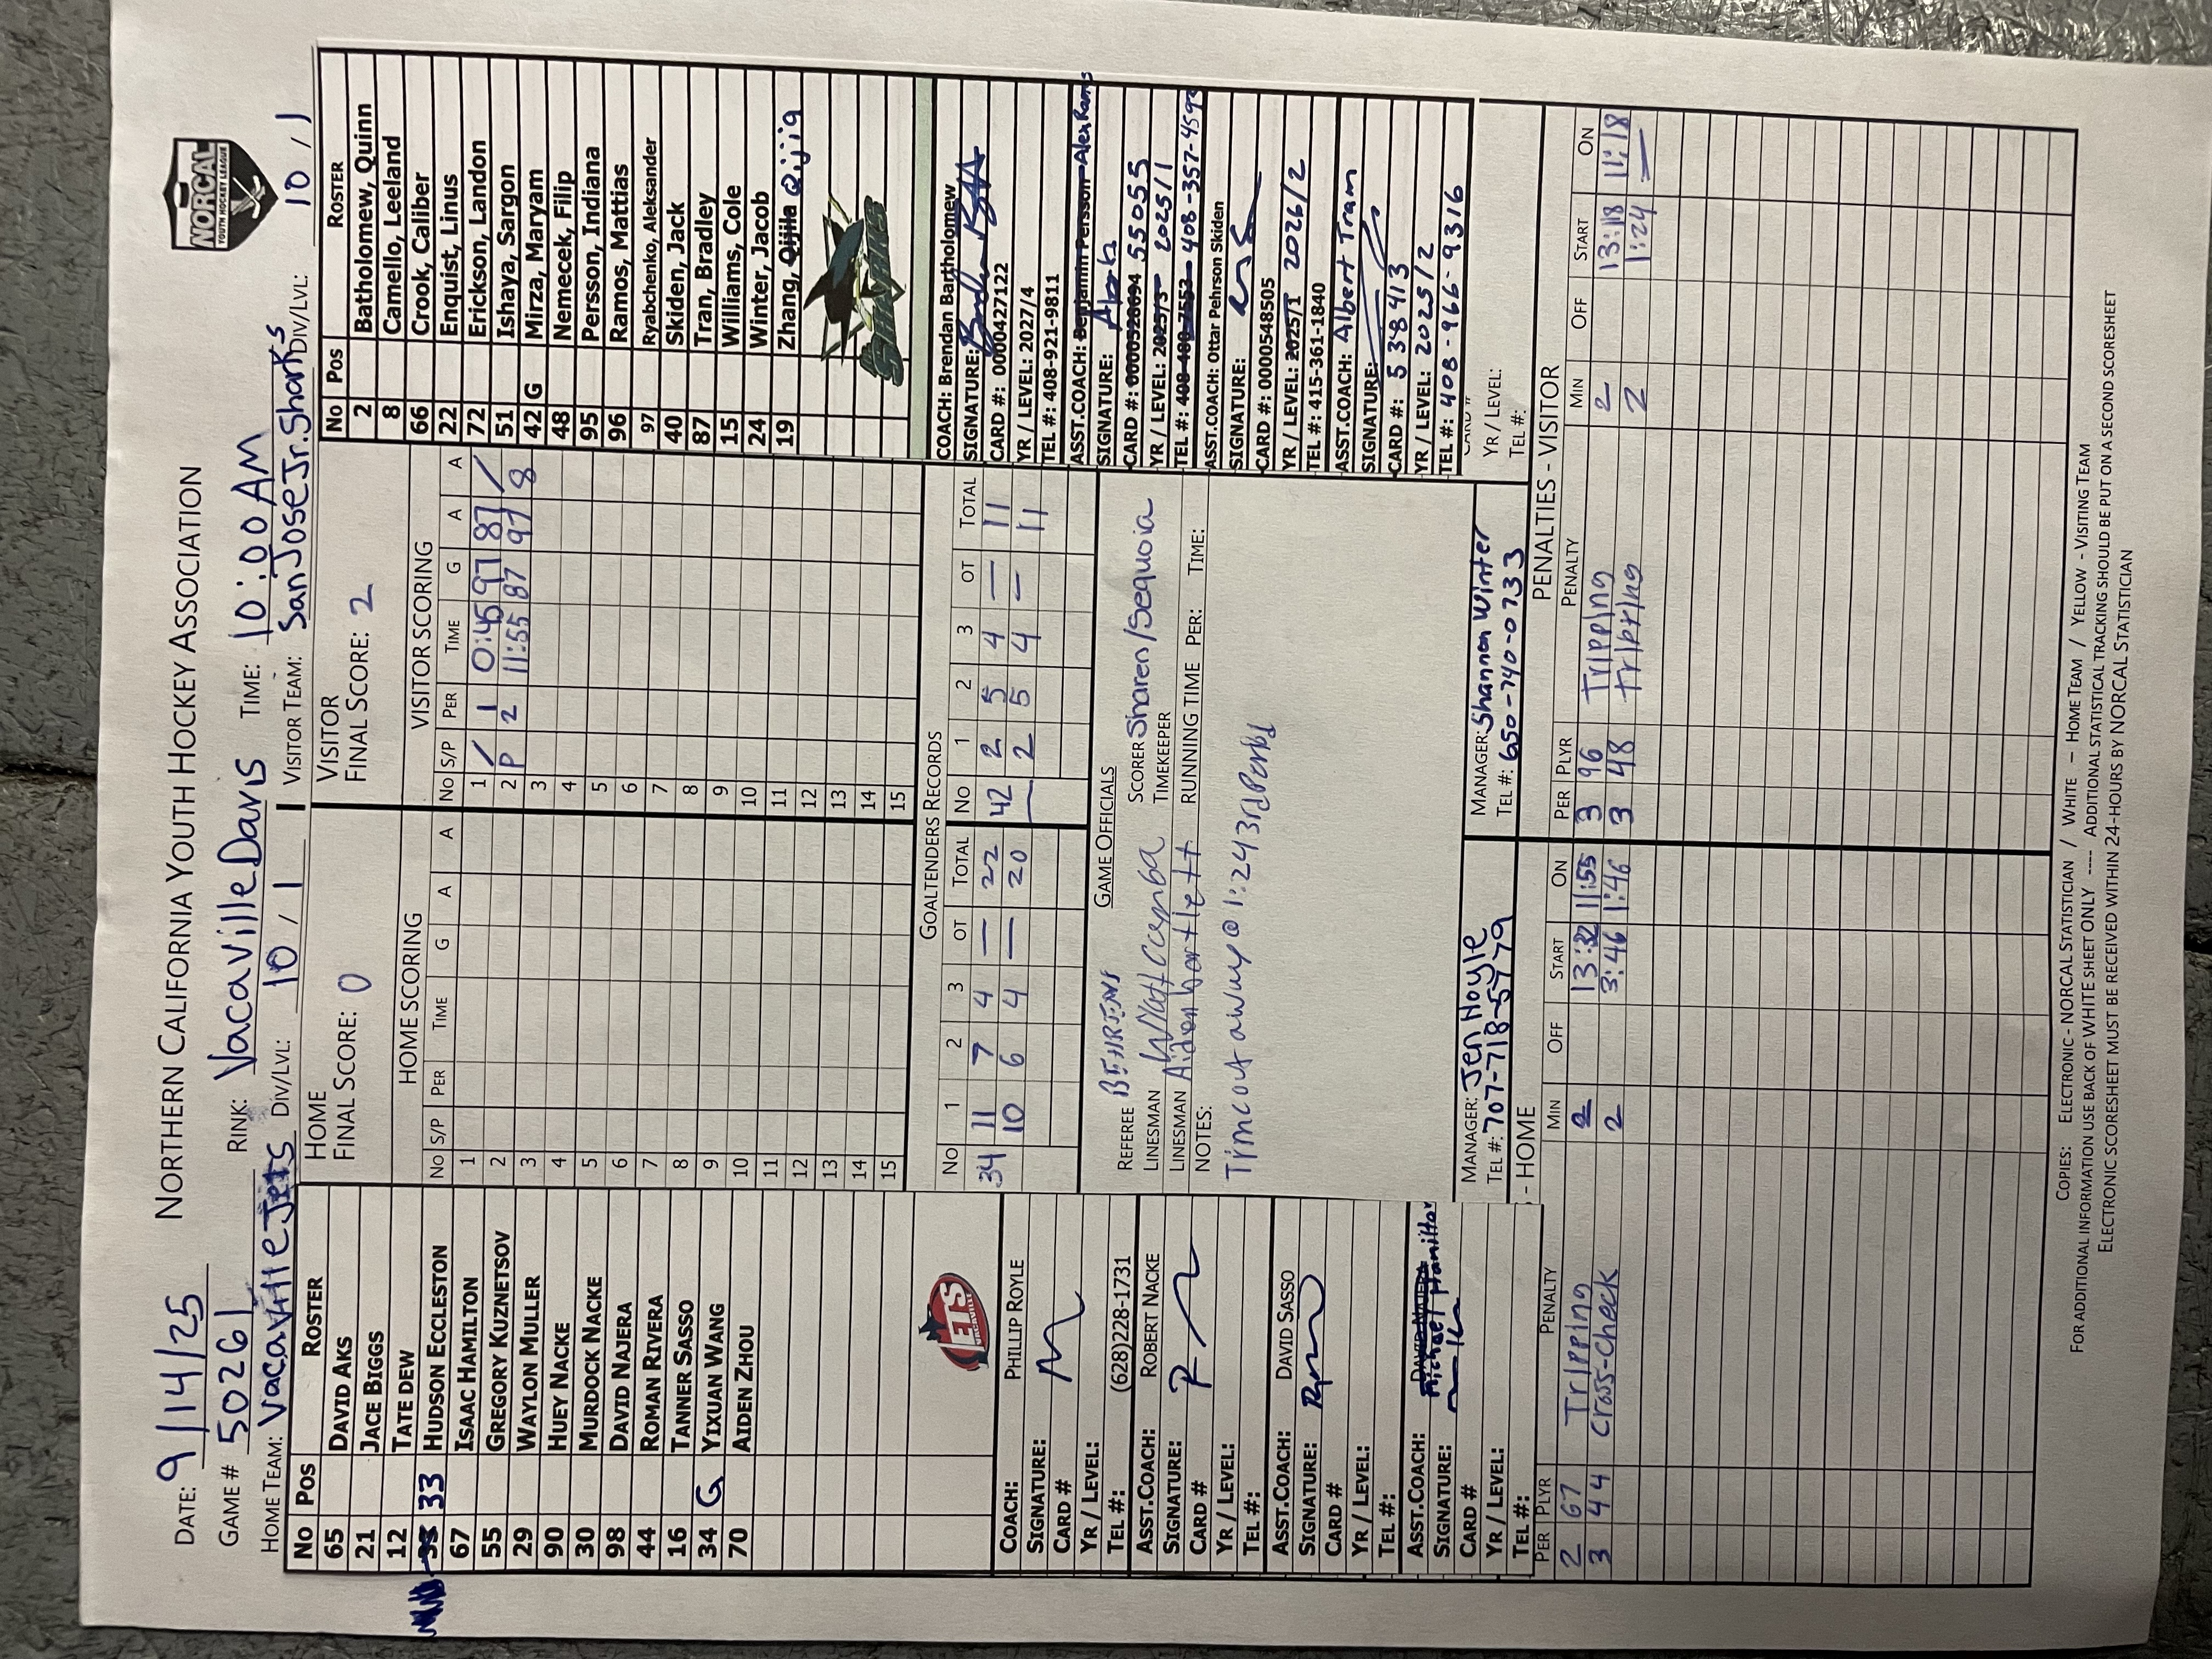 NORTHERN CALIFORNIA YOUTH HOCKEY ASSOCIATION
NORCAL
YOUTH HOCKEY LEAGUE
DATE: 9/14/25
GAME # 50261 RINK: Vacaville Davis TIME: 10:00 AM
HOME TEAM: Vacaville Jets DIV/LVL: 10 / 1 VISITOR TEAM: San Jose Jr. Sharks DIV/LVL: 10 / 1
No Pos ROSTER
65 DAVID AKS
21 JACE BIGGS
12 TATE DEW
33 HUDSON ECCLESTON
67 ISAAC HAMILTON
55 GREGORY KUZNETSOV
29 WAYLON MULLER
90 HUEY NACKE
30 MURDOCK NACKE
98 DAVID NAJERA
44 ROMAN RIVERA
16 TANNER SASSO
34 G YIXUAN WANG
70 AIDEN ZHOU
JETS
VACAVILLE
COACH: PHILLIP ROYLE
SIGNATURE:
CARD #
YR / LEVEL:
TEL #: (628)228-1731
ASST.COACH: ROBERT NACKE
SIGNATURE:
CARD #
YR / LEVEL:
TEL #:
ASST.COACH: DAVID SASSO
SIGNATURE:
CARD #
YR / LEVEL:
TEL #:
ASST.COACH: DAVID NAJERA Michael Hamilton
SIGNATURE:
CARD #
YR / LEVEL:
TEL #:
HOME
FINAL SCORE: 0
HOME SCORING
No S/P PER TIME G A A
1
2
3
4
5
6
7
8
9
10
11
12
13
14
15
VISITOR
FINAL SCORE: 2
VISITOR SCORING
No S/P PER TIME G A A
1 / 1 0:45 97 87 /
2 P 2 11:55 87 97 8
3
4
5
6
7
8
9
10
11
12
13
14
15
GOALTENDERS RECORDS
No 1 2 3 OT TOTAL No 1 2 3 OT TOTAL
34 11 7 4 — 22 42 2 5 4 — 11
10 6 4 — 20 — 2 5 4 — 11
GAME OFFICIALS
REFEREE BEHRENS SCORER Sharen/Sequoia
LINESMAN TIMEKEEPER
LINESMAN Aiden bartlett RUNNING TIME PER: TIME:
NOTES:
Timeout away @ 1:24 3rd Period
MANAGER: Jen Hoyle
TEL #: 707-718-5779
MANAGER: Shannon Winter
TEL #: 650-740-0733
No Pos ROSTER
2 Batholomew, Quinn
8 Camello, Leeland
66 Crook, Caliber
22 Enquist, Linus
72 Erickson, Landon
51 Ishaya, Sargon
42 G Mirza, Maryam
48 Nemecek, Filip
95 Persson, Indiana
96 Ramos, Mattias
97 Ryabchenko, Aleksander
40 Skiden, Jack
87 Tran, Bradley
15 Williams, Cole
24 Winter, Jacob
19 Zhang, Qijila Qijia
SHARKS
COACH: Brendan Bartholomew
SIGNATURE:
CARD #: 0000427122
YR / LEVEL: 2027/4
TEL #: 408-921-9811
ASST.COACH: Benjamin Persson Alex Ramos
SIGNATURE:
CARD #: 0000526694 555055
YR / LEVEL: 2025/3 2025/1
TEL #: 408-480-7553 408-357-4590
ASST.COACH: Ottar Pehrson Skiden
SIGNATURE:
CARD #: 0000548505
YR / LEVEL: 2025/1 2026/2
TEL #: 415-361-1840
ASST.COACH: Albert Tram
SIGNATURE:
CARD #: 538413
YR / LEVEL: 2025/2
TEL #: 408-966-9316
YR / LEVEL:
TEL #:
- HOME
PER PLYR PENALTY MIN OFF START ON
2 67 Tripping 2 13:32 11:55
3 44 Cross-Check 2 3:46 1:46
PENALTIES - VISITOR
PER PLYR PENALTY MIN OFF START ON
3 96 Tripping 2 13:18 11:18
3 48 tripping 2 1:24 —
COPIES: ELECTRONIC - NORCAL STATISTICIAN / WHITE – HOME TEAM / YELLOW - VISITING TEAM
FOR ADDITIONAL INFORMATION USE BACK OF WHITE SHEET ONLY ---- ADDITIONAL STATISTICAL TRACKING SHOULD BE PUT ON A SECOND SCORESHEET
ELECTRONIC SCORESHEET MUST BE RECEIVED WITHIN 24-HOURS BY NORCAL STATISTICIAN